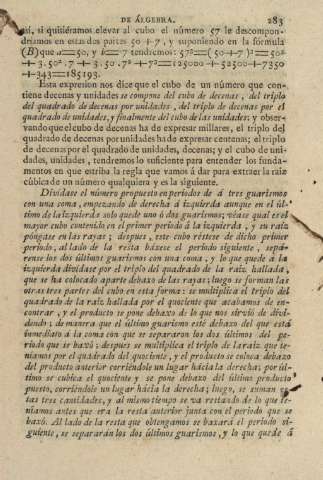 DE ÁLGEBRA. 283
así, si quisiéramos elevar al cubo el número 57 le descompon-
dríamos en estas dos partes 50+7, y suponiendo en la fórmula
(B) que a=50, y b=7 tendremos: 57³=(50+7)³=50³
+3.50².7+3.50.7²+7³=125000+52500+7350
+343=185193.
Esta expresion nos dice que el cubo de un número que con-
tiene decenas y unidades se compone del cubo de decenas, del triplo
del quadrado de decenas por unidades, del triplo de decenas por el
quadrado de unidades, y finalmente del cubo de las unidades: y obser-
vando que el cubo de decenas ha de expresar millares, el triplo del
quadrado de decenas por unidades ha de expresar centenas; el triplo
de decenas por el quadrado de unidades, decenas; y el cubo de uni-
dades, unidades, tendremos lo suficiente para entender los funda-
mentos en que estriba la regla que vamos á dar para extraer la raiz
cúbica de un número qualquiera y es la siguiente.
Divídase el número propuesto en periodos de á tres guarismos
con una coma, empezando de derecha á izquierda aunque en el úl-
timo de la izquierda solo quede uno ó dos guarismos; véase qual es el
mayor cubo contenido en el primer periodo á la izquierda, y su raíz
póngase en las rayas; despues, este cubo réstese de dicho primer
periodo, al lado de la resta báxese el periodo siguiente, sepá-
rense los dos últimos guarismos con una coma, y lo que quede á la
izquierda divídase por el triplo del quadrado de la raiz hallada,
que se ha colocado aparte debaxo de las rayas; luego se forman las
otras tres partes del cubo en esta forma: se multiplica el triplo del
quadrado de la raiz hallada por el quociente que acabamos de en-
contrar, y el producto se pone debaxo de lo que nos sirvió de divi-
dendo; de manera que el último guarismo esté debaxo del que está
inmediato á la coma con que se separaron los dos últimos del pe-
riodo que se baxó; despues se multiplica el triplo de la raiz que te-
níamos por el quadrado del quociente, y el producto se coloca debaxo
del producto anterior corriéndole un lugar hácia la derecha; por úl-
timo se cubica el quociente y se pone debaxo del último producto
puesto, corriéndole un lugar hácia la derecha; luego, se suman es-
tas tres cantidades, y al mismo tiempo se va restando de lo que te-
níamos antes que era la resta anterior junta con el periodo que se
baxó. Al lado de la resta que obtengamos se baxará el periodo si-
guiente, se separarán los dos últimos guarismos, y lo que quede á